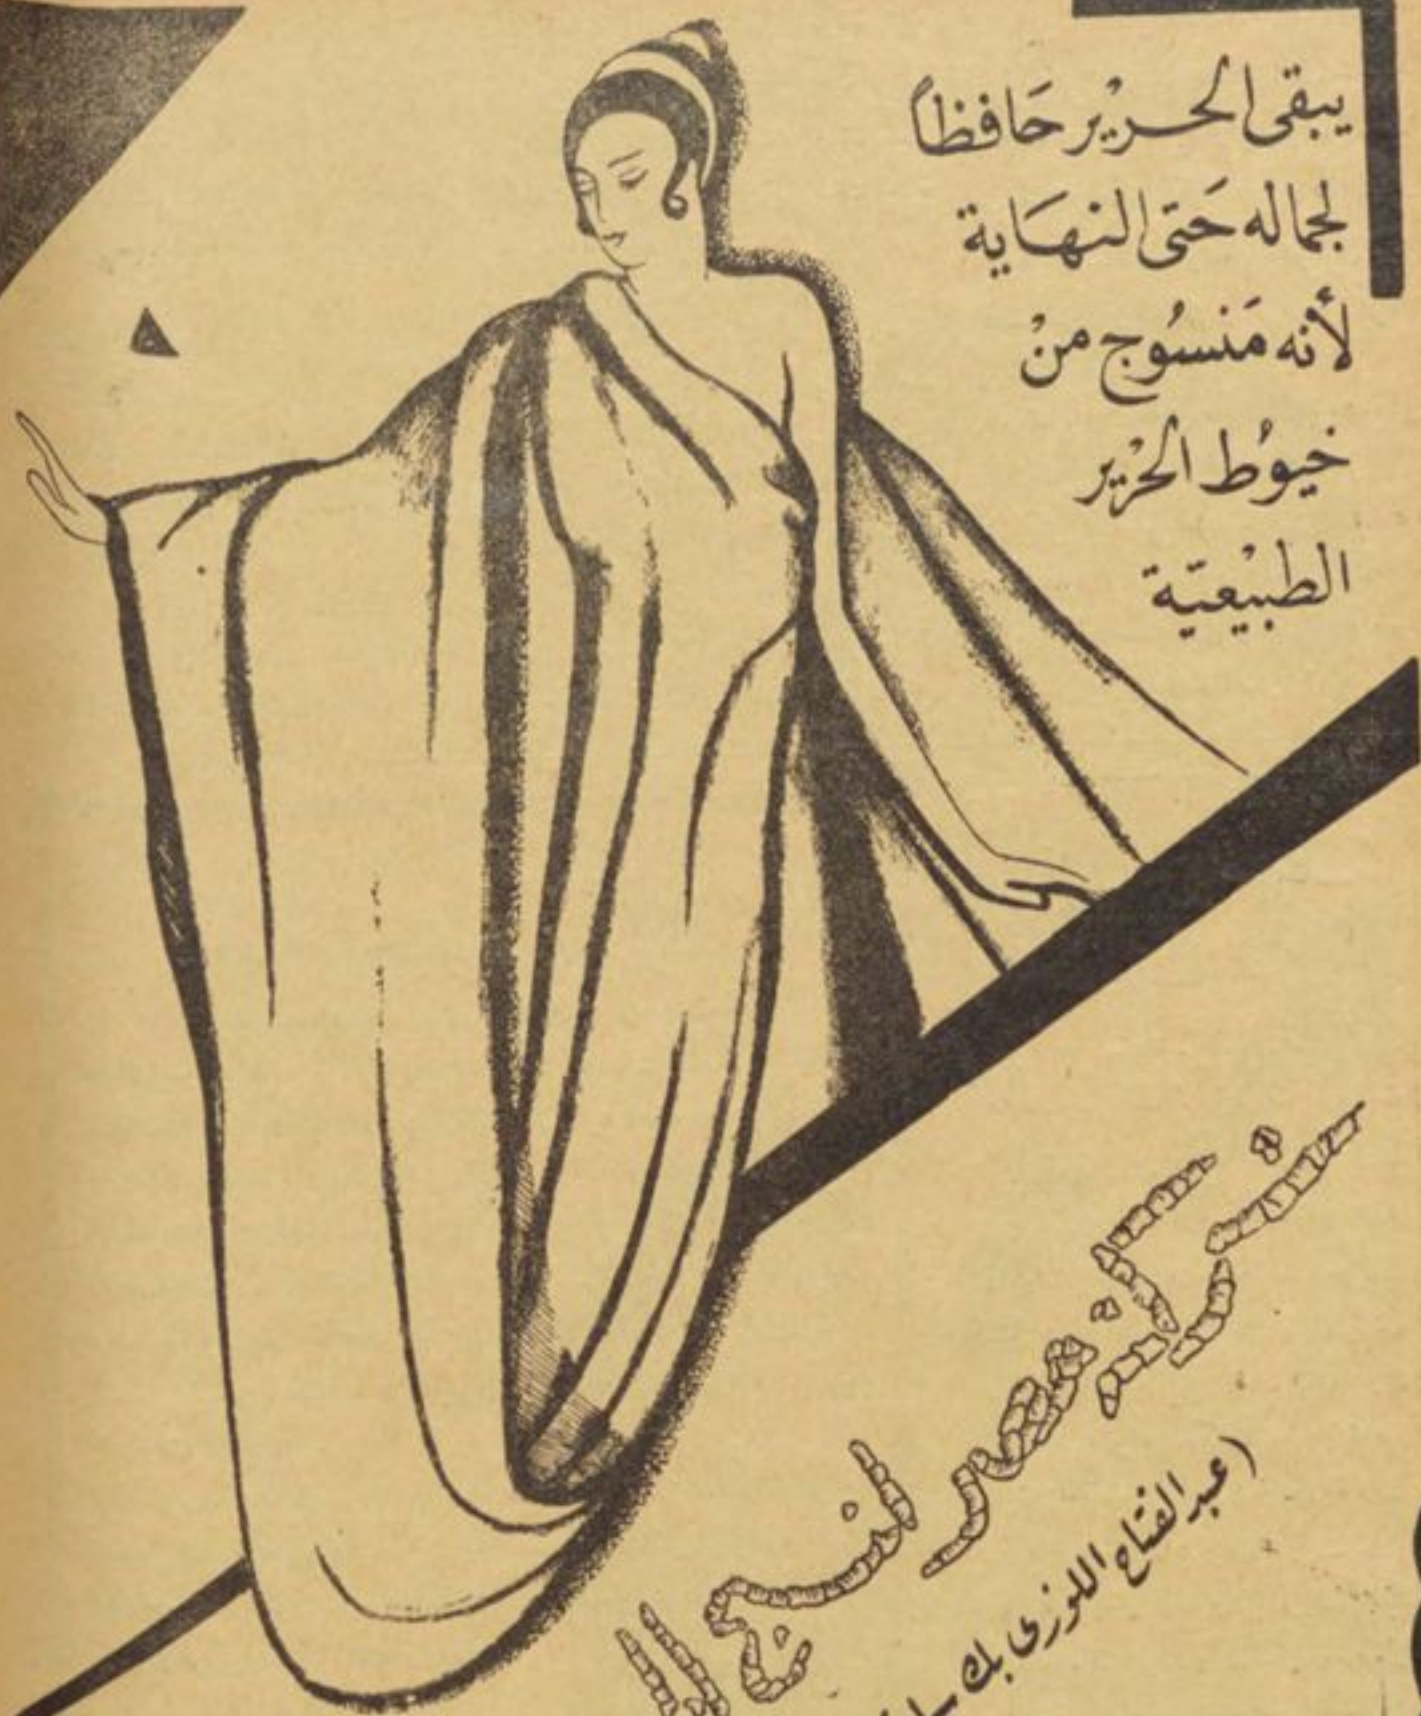 يبقى الحرْير حَافظاً
لجماله حَتى النهَاية
لأنه مَنسُوج منْ
خيوُط الحرْير
الطبيْعيّة
شركة مصر لنسج ال
(عبد الفتاح اللوزى بك